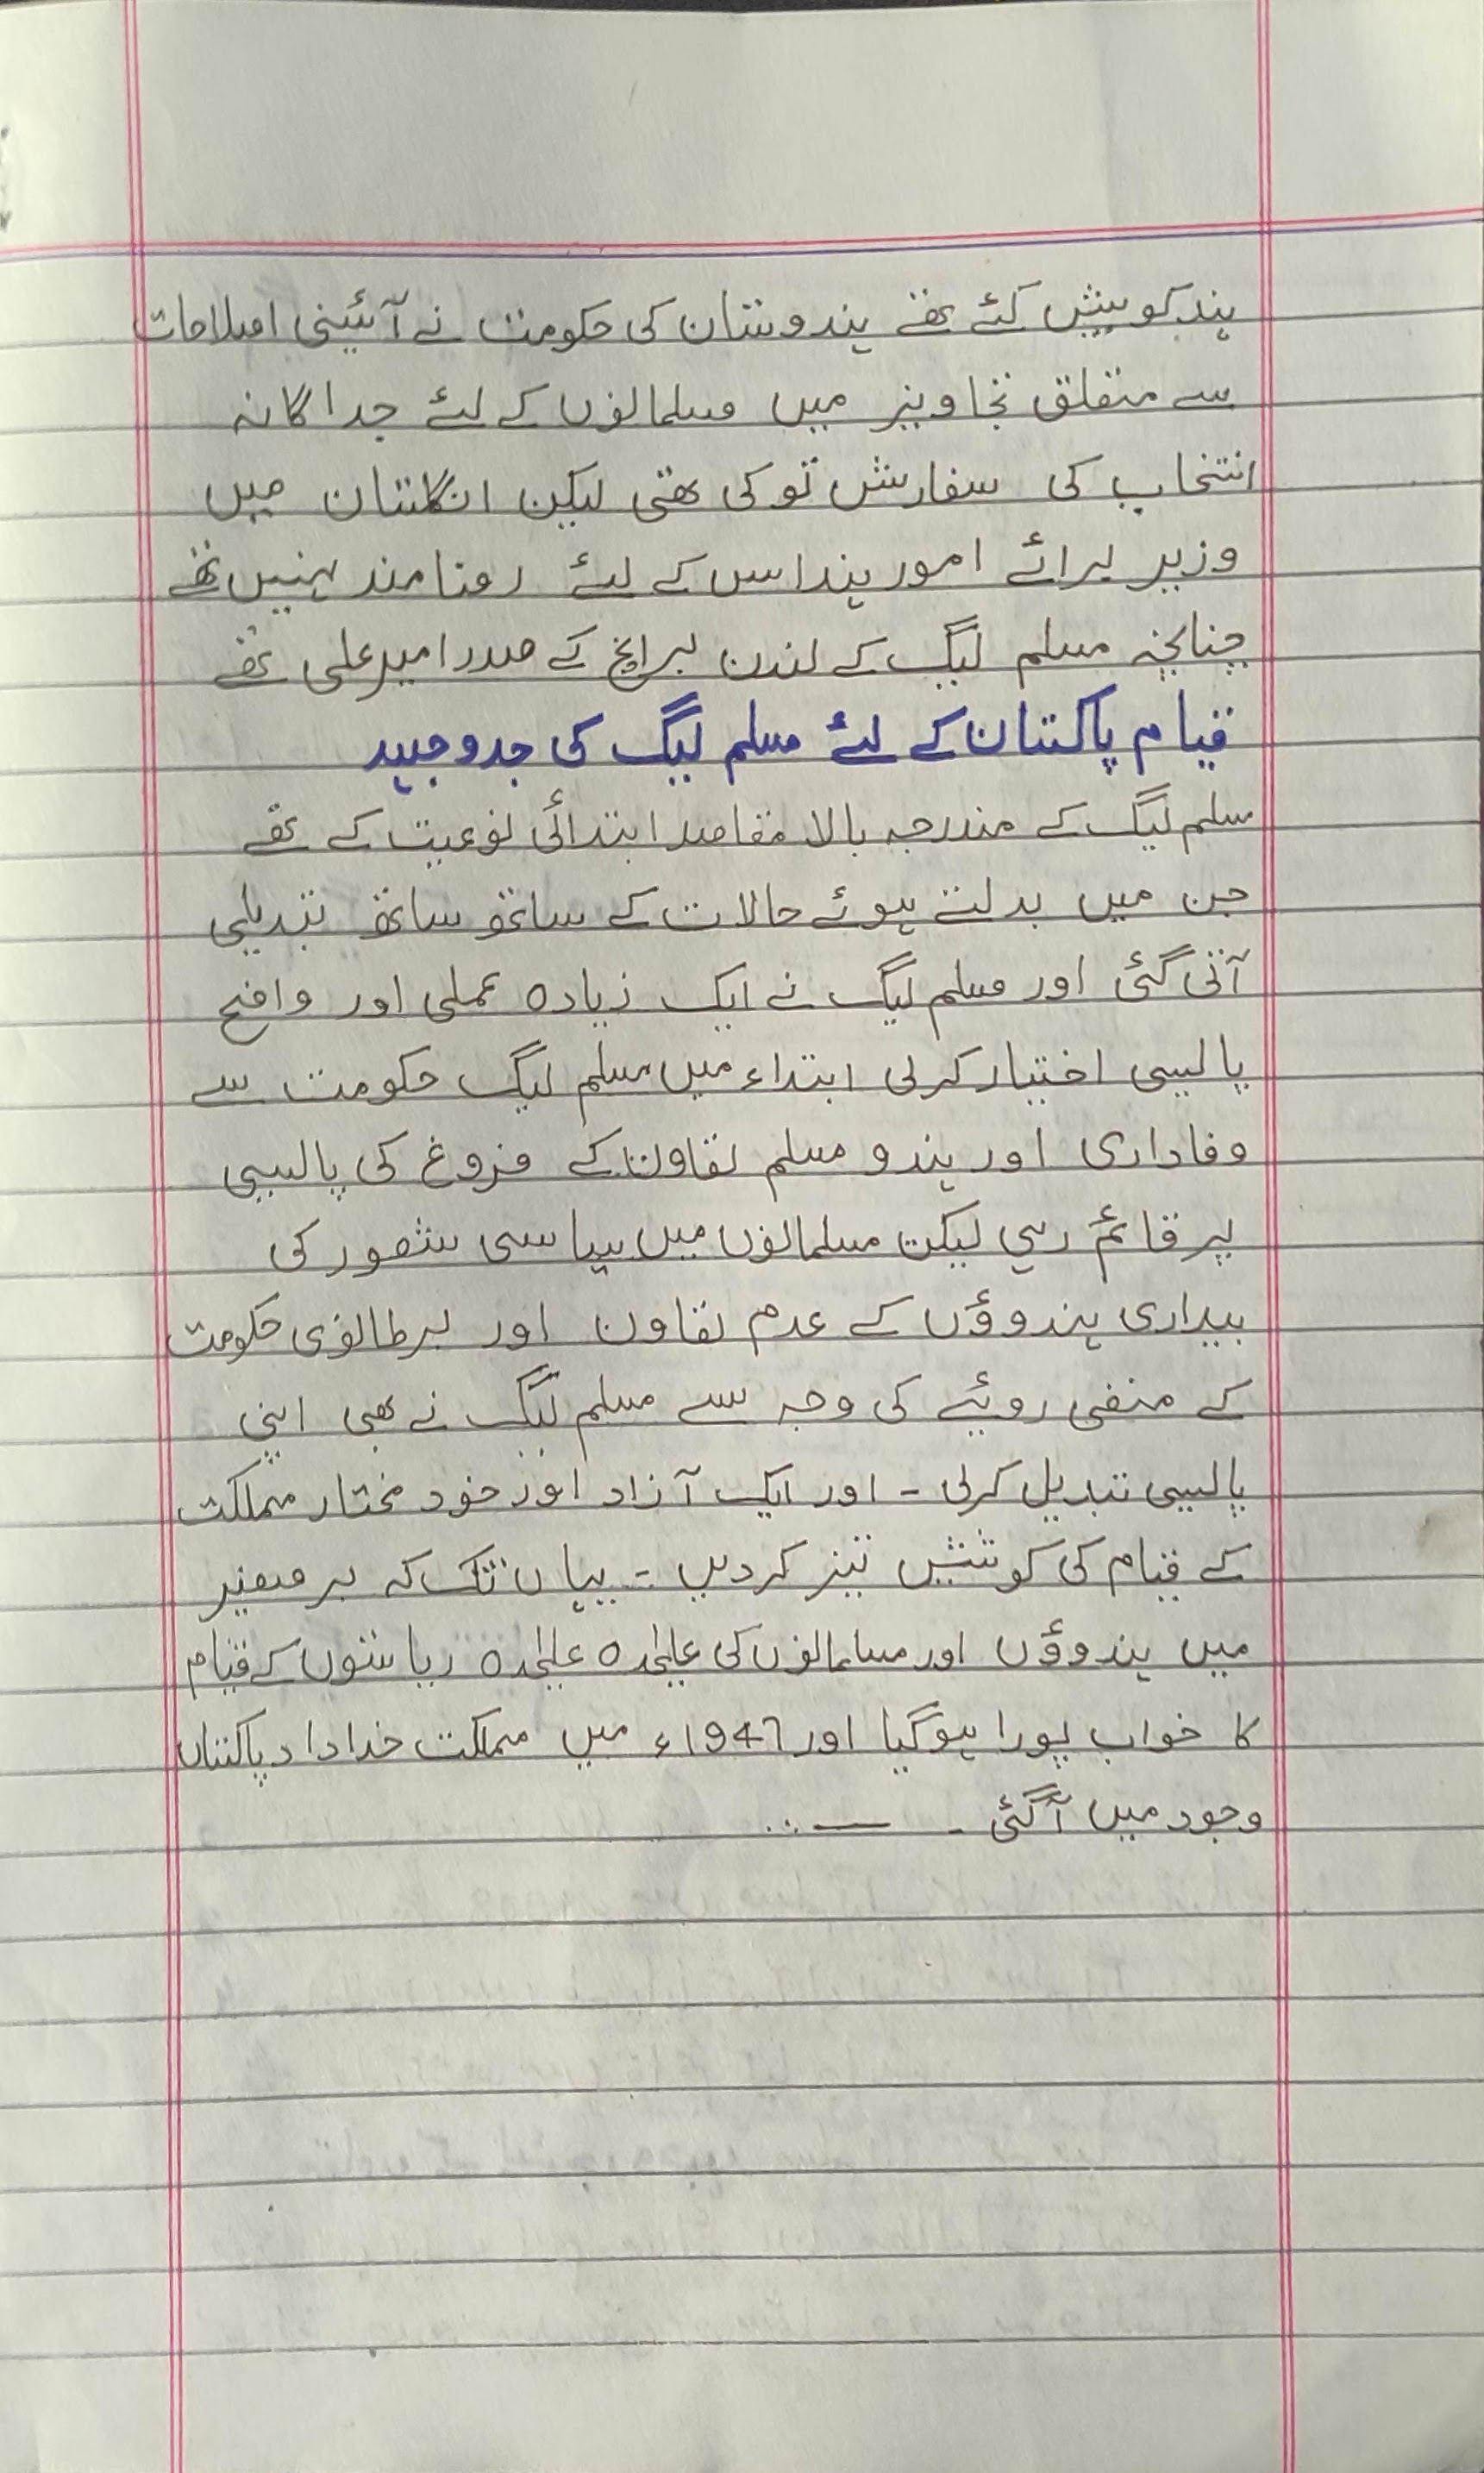 ہند کو پیش کئے تھے ہندوستان کی حکومت نے آئینی اصلاحات
سے متعلق تجاویز میں مسلمانوں کے لئے جداگانہ
انتخاب کی سفارش تو کی تھی لیکن انگلستان میں
وزیر برائے امور ہند اس کے لئے رضامند نہیں تھے
چنانچہ مسلم لیگ کے لندن برانچ کے صدر امیر علی تھے
قیام پاکستان کے لئے مسلم لیگ کی جدوجہد
مسلم لیگ کے مندرجہ بالا مقاصد ابتدائی نوعیت کے تھے
جن میں بدلتے ہوئے حالات کے ساتھ ساتھ تبدیلی
آتی گئی اور مسلم لیگ نے ایک زیادہ عملی اور واضح
پالیسی اختیار کرلی ابتداء میں مسلم لیگ حکومت سے
وفاداری اور ہندو مسلم تعاون کے فروغ کی پالیسی
پر قائم رہی لیکن مسلمانوں میں سیاسی شعور کی
بیداری ہندوؤں کے عدم تعاون اور برطانوی حکومت
کے منفی روئیے کی وجہ سے مسلم لیگ نے بھی اپنی
پالیسی تبدیل کرلی - اور ایک آزاد اور خود مختار مملکت
کے قیام کی کوششیں تیز کردیں - یہاں تک کہ برصغیر
میں ہندوؤں اور مسلمانوں کی علیحدہ علیحدہ ریاستوں کے قیام
کا خواب پورا ہوگیا اور 1947ء میں مملکت خداداد پاکستان
وجود میں آگئی -